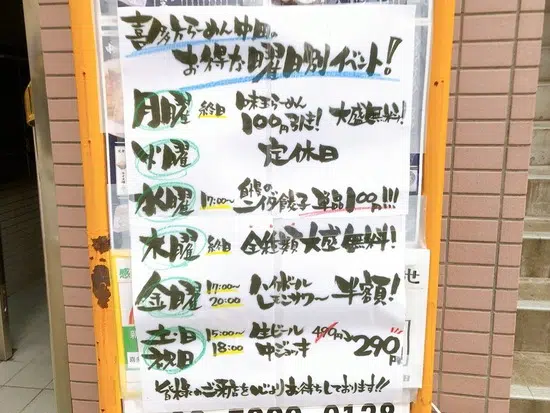 喜多方らーめん中田の
お得な曜日別イベント!
月曜 終日 味玉らーめん 100円引き! 大盛無料!
火曜 定休日
水曜 17:00〜 自慢の 一夕餃子 単品100円!!!
木曜 終日 全種類大盛無料!
金曜 17:00〜20:00 ハイボール レモンサワー 半額!
土日祝日 15:00〜18:00 生ビール 中ジョッキ 490円→290円
皆様のご来店を心よりお待ちしております!!
感
せ